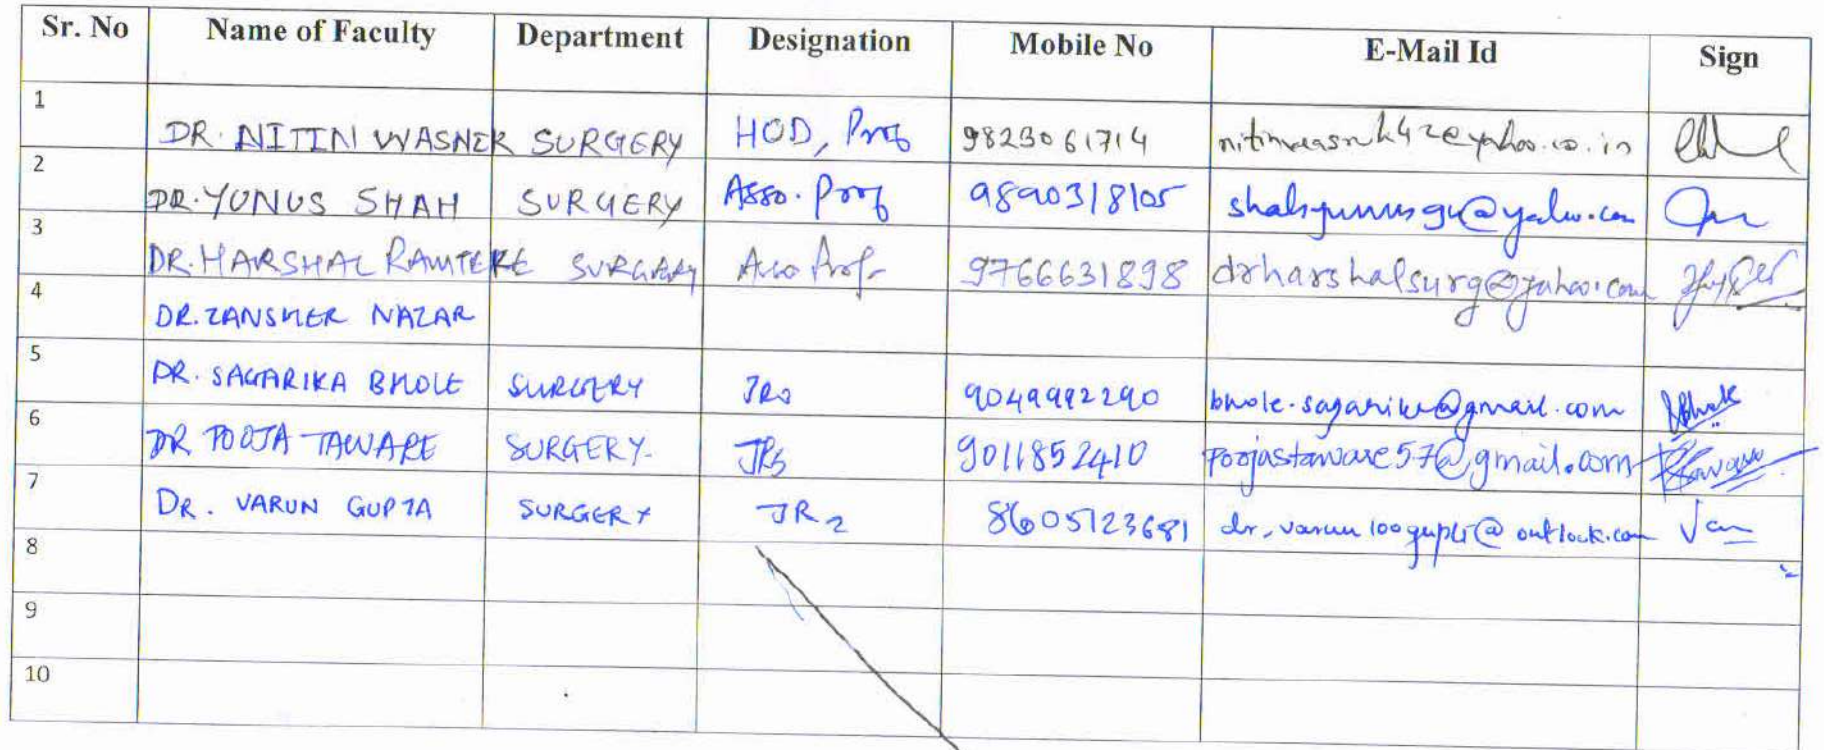 Sr. No Name of Faculty Department Designation Mobile No E-Mail Id Sign
1 DR. NITIN WASNER SURGERY HOD, Prof 9823061714
2 DR. YUNUS SHAH SURGERY Asso. Prof 9890318105
3 DR. HARSHAL RAMTEKE SURGERY Asso Prof. 9766631898 drharshalsurg@yahoo.com
4 DR. ZANSHER NAZAR
5 DR. SAGARIKA BHOLE SURGERY 9049992290 bhole.sagarika@gmail.com
6 DR POOJA TAWARE SURGERY 9011852410 poojastaware57@gmail.com
7 DR. VARUN GUPTA SURGERY JR2 8605123681 dr.varun100gupta@outlook.com
8
9
10